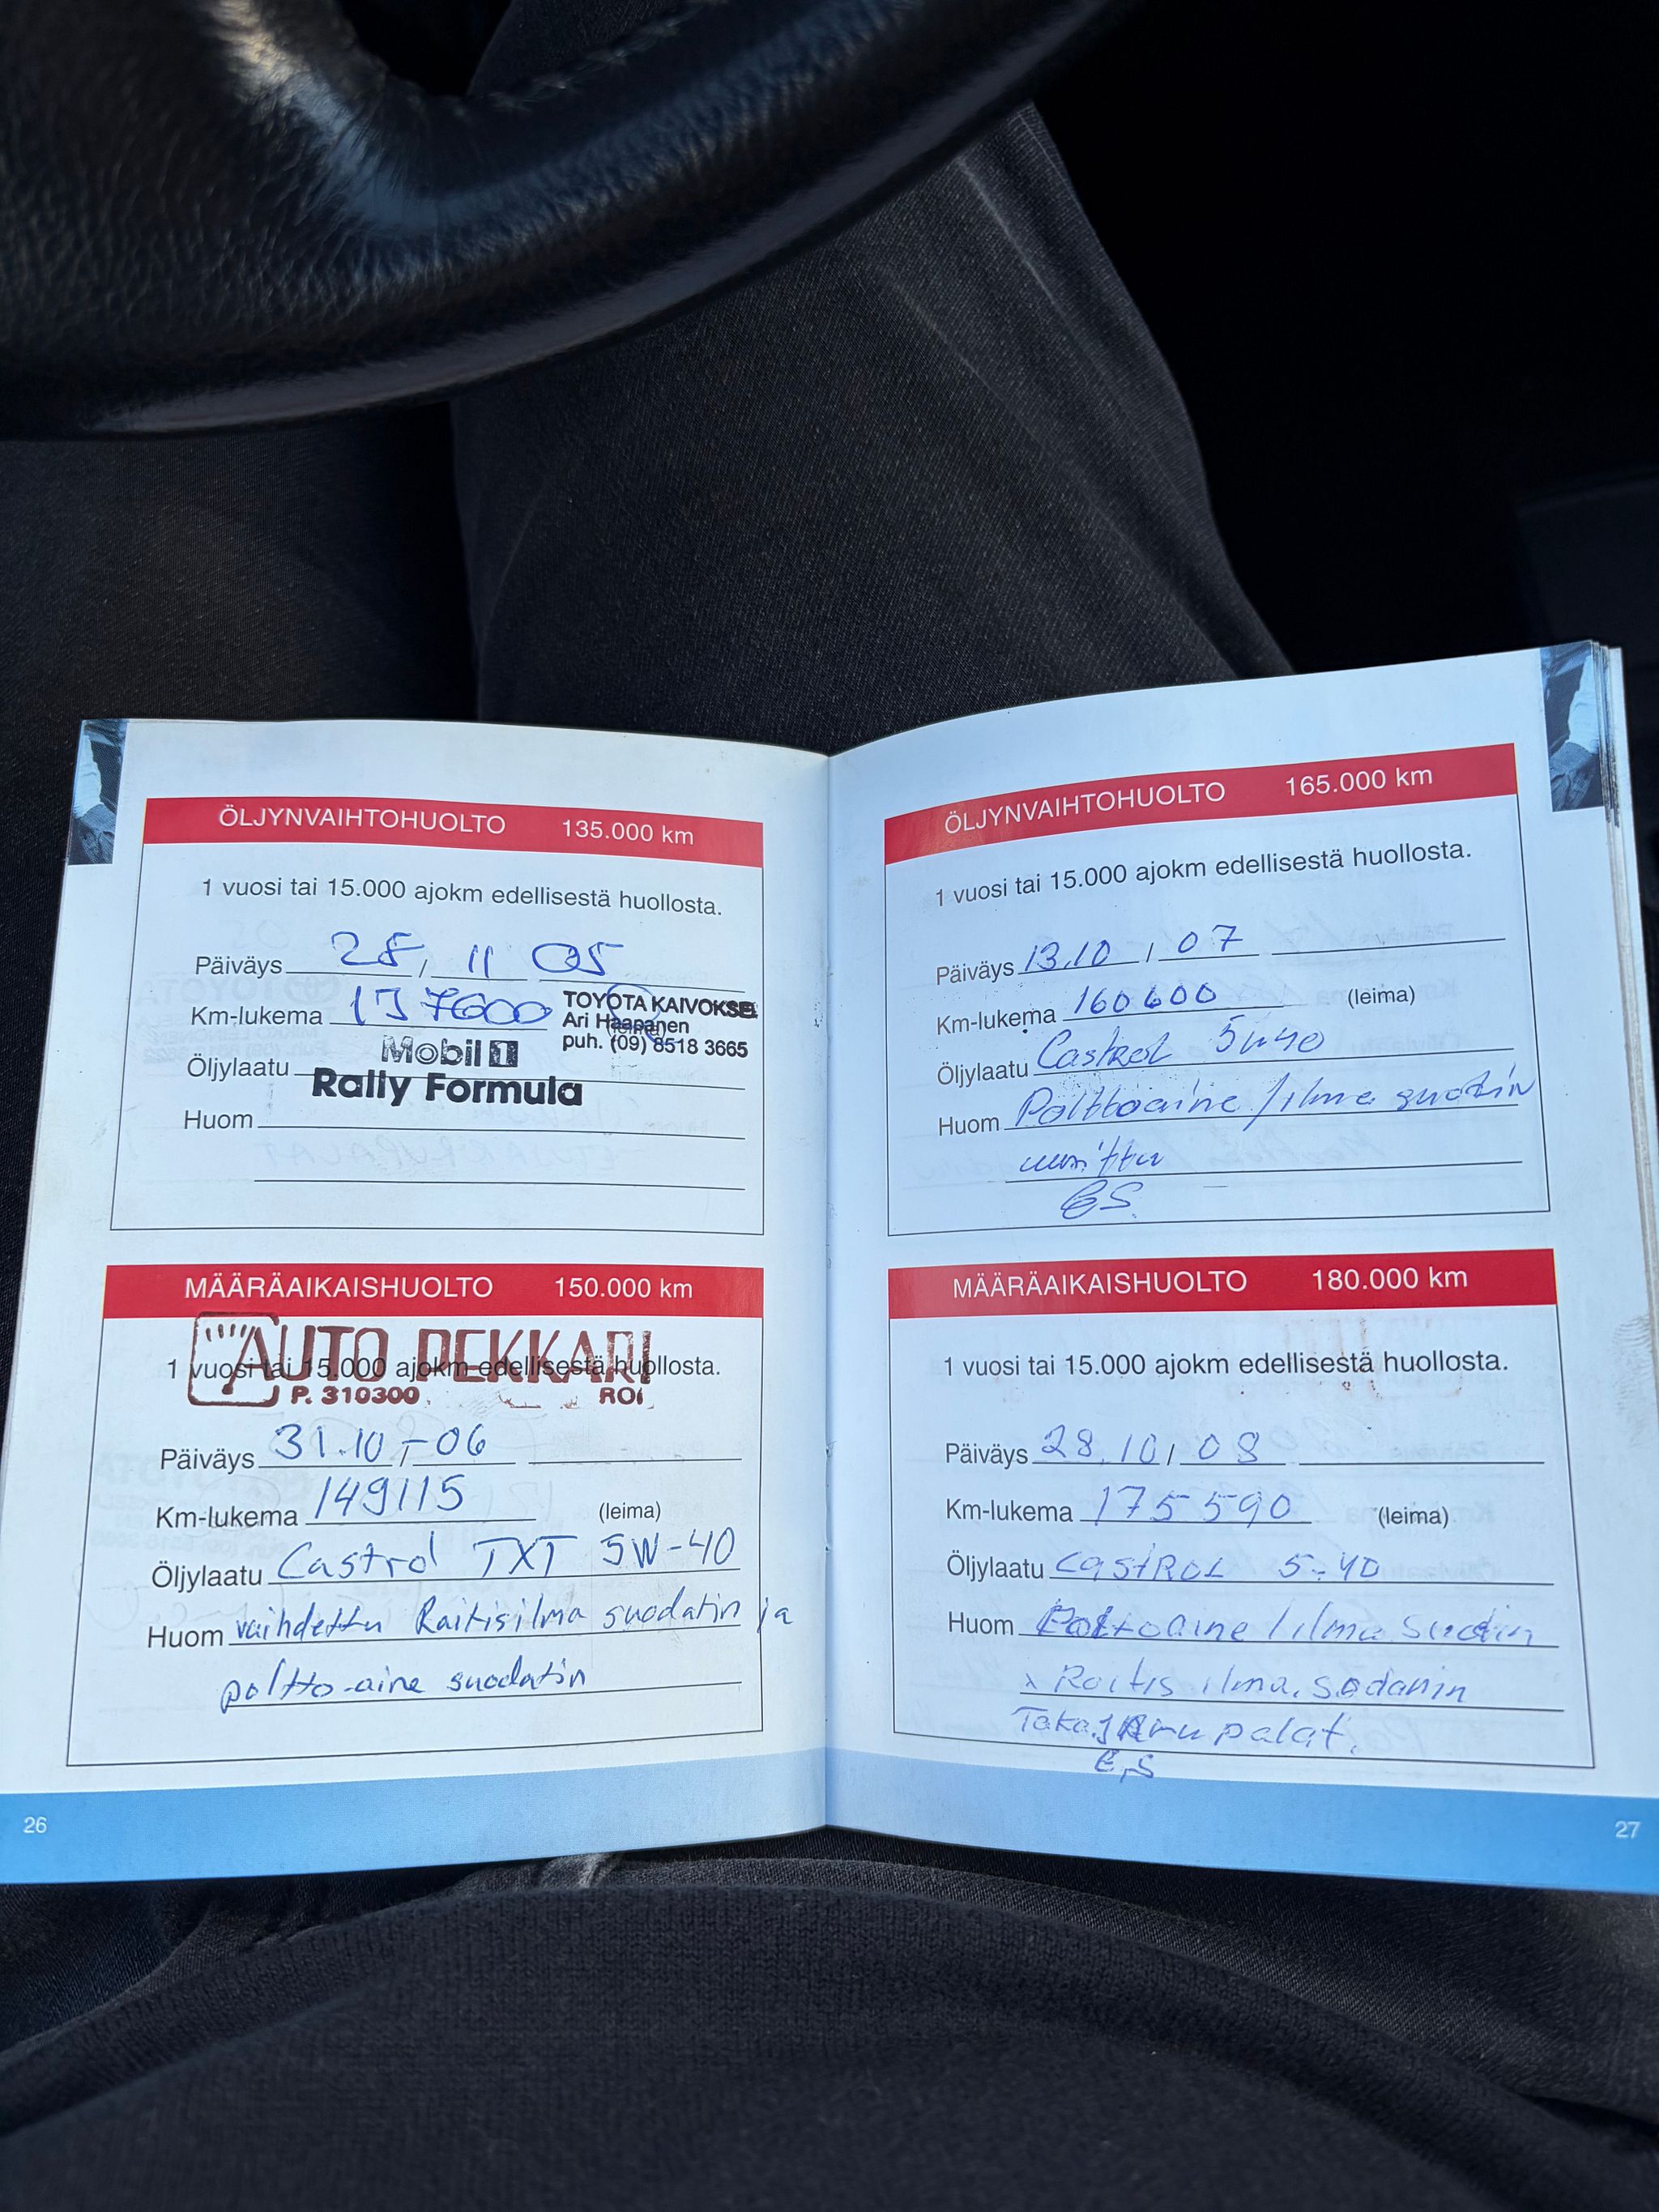 ÖLJYNVAIHTOHUOLTO 135.000 km
1 vuosi tai 15.000 ajokm edellisestä huollosta.
Päiväys 28, 11 05
Km-lukema 137600
TOYOTA KAIVOKSELA
Ari Haapanen
(leima)
puh. (09) 8518 3665
Öljylaatu Mobil 1
Rally Formula
Huom
MÄÄRÄAIKAISHUOLTO 150.000 km
AUTO PEKKARI
1 vuosi tai 15.000 ajokm edellisestä huollosta.
P. 310300 ROI
Päiväys 31.10,-06
Km-lukema 149115 (leima)
Öljylaatu Castrol TXT 5W-40
Huom vaihdettu Raitisilma suodatin ja
poltto-aine suodatin
26
ÖLJYNVAIHTOHUOLTO 165.000 km
1 vuosi tai 15.000 ajokm edellisestä huollosta.
Päiväys 13.10 / 07
Km-lukema 160600 (leima)
Öljylaatu Castrol 5w40
Huom Polttoaine / ilma suodin
ES.
MÄÄRÄAIKAISHUOLTO 180.000 km
1 vuosi tai 15.000 ajokm edellisestä huollosta.
Päiväys 28.10 / 08
Km-lukema 175590 (leima)
Öljylaatu CASTROL 5-40
Huom Polttoaine / ilma suodin
x Raitis ilma. sodanin
Taka Jarru palat.
E,S
27